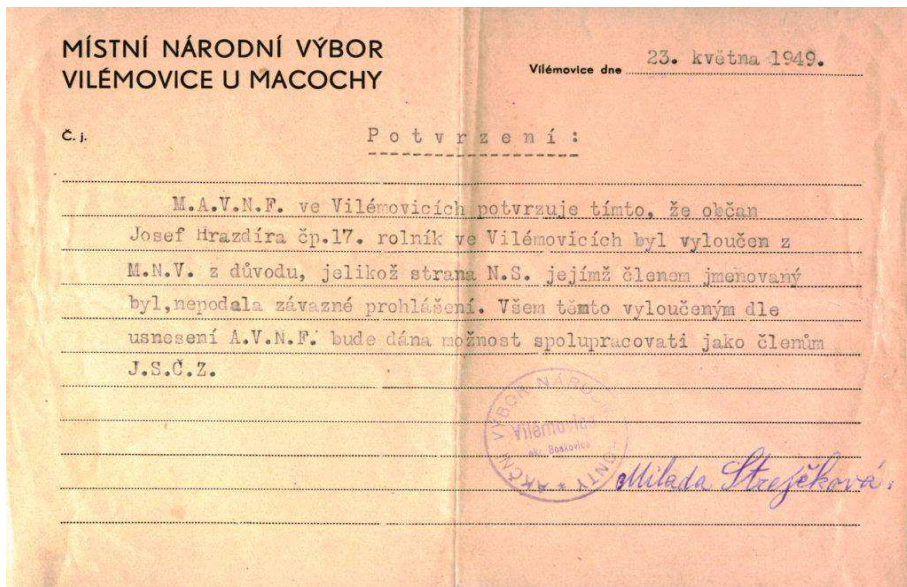 MÍSTNÍ NÁRODNÍ VÝBOR
VILÉMOVICE U MACOCHY
Vilémovice dne 23. května 1949.
Č. j.
Potvrzení:
M.A.V.N.F. ve Vilémovicích potvrzuje tímto, že občan
Josef Hrazdíra čp.17. rolník ve Vilémovicích byl vyloučen z
M.N.V. z důvodu, jelikož strana N.S. jejímž členem jmenovaný
byl,nepodala závazné prohlášení. Všem těmto vyloučeným dle
usnesení A.V.N.F. bude dána možnost spolupracovati jako členům
J.S.Č.Z.
AKČNÍ VÝBOR NÁRODNÍ FRONTY
Vilémovice
okr. Boskovice
Milada Strejčková.